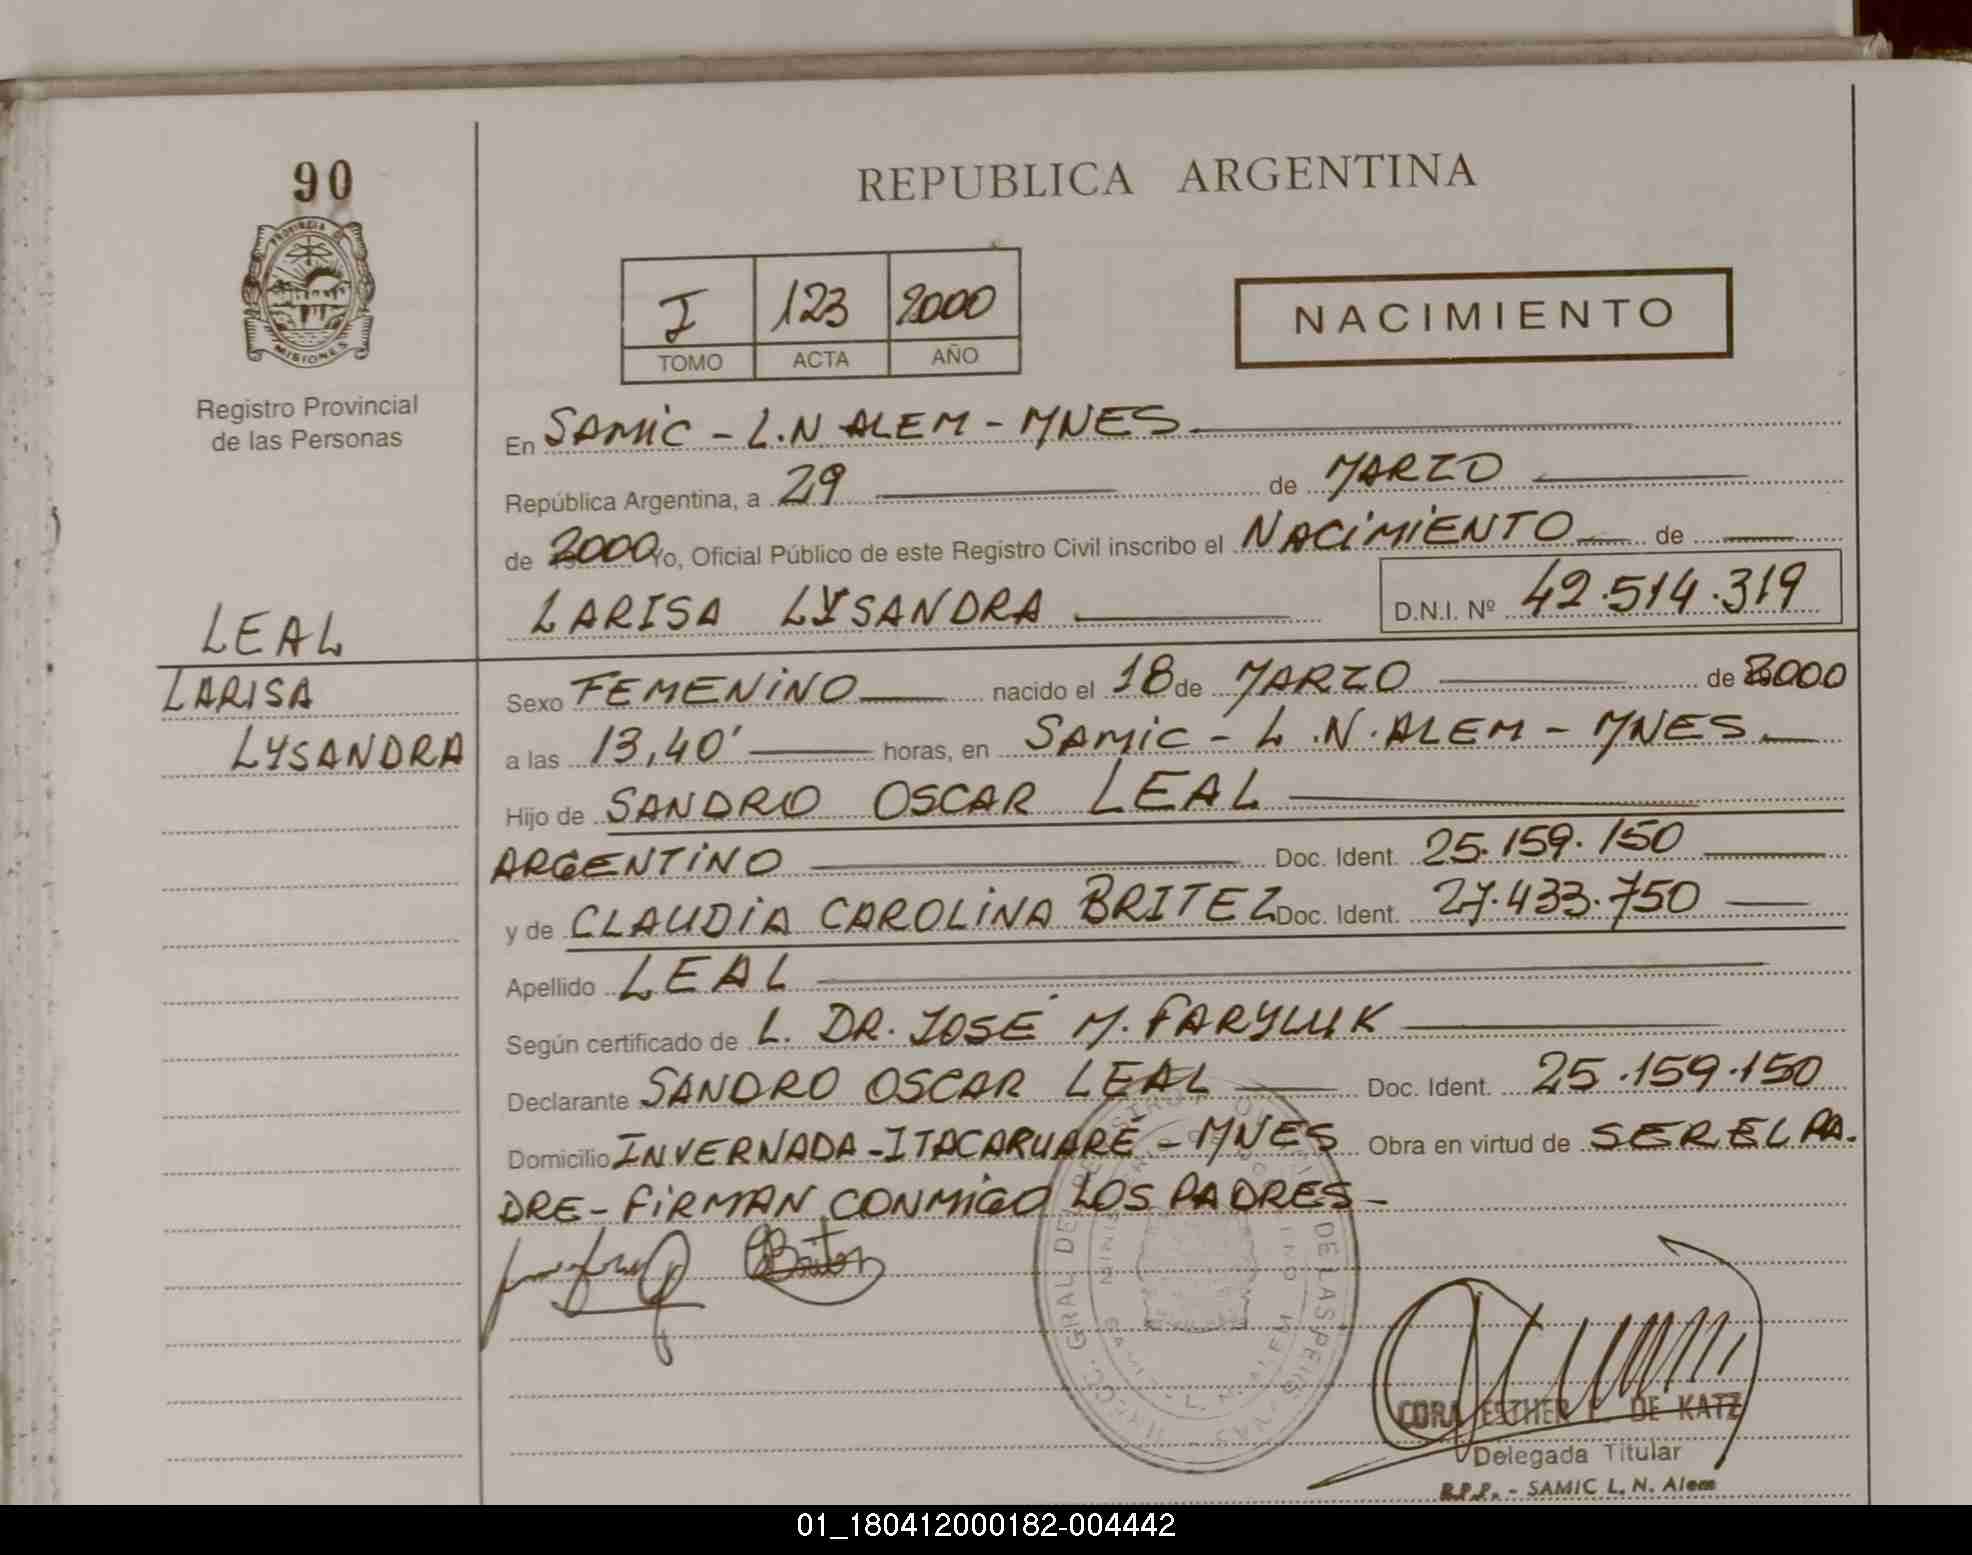 90
PROVINCIA DE
MISIONES
Registro Provincial
de las Personas
LEAL
LARISA
LYSANDRA
REPUBLICA ARGENTINA
I 123 2000
TOMO ACTA AÑO
NACIMIENTO
En SAMIC - L.N ALEM - MNES
República Argentina, a 29 de MARZO
de 2000 Yo, Oficial Público de este Registro Civil inscribo el NACIMIENTO de
LARISA LYSANDRA D.N.I. Nº 42.514.319
Sexo FEMENINO nacido el 18 de MARZO de 2000
a las 13,40' horas, en SAMIC - L.N.ALEM - MNES
Hijo de SANDRO OSCAR LEAL
ARGENTINO Doc. Ident. 25.159.150
y de CLAUDIA CAROLINA BRITEZ Doc. Ident. 27.433.750
Apellido LEAL
Según certificado de L. DR. JOSÉ M. FARYLUK
Declarante SANDRO OSCAR LEAL Doc. Ident. 25.159.150
Domicilio INVERNADA - ITACARUARÉ - MNES Obra en virtud de SER EL PA.
DRE - FIRMAN CONMIGO LOS PADRES -
CORA ESTHER DE KATZ
Delegada Titular
R.P.P. - SAMIC L. N. Alem
01_180412000182-004442